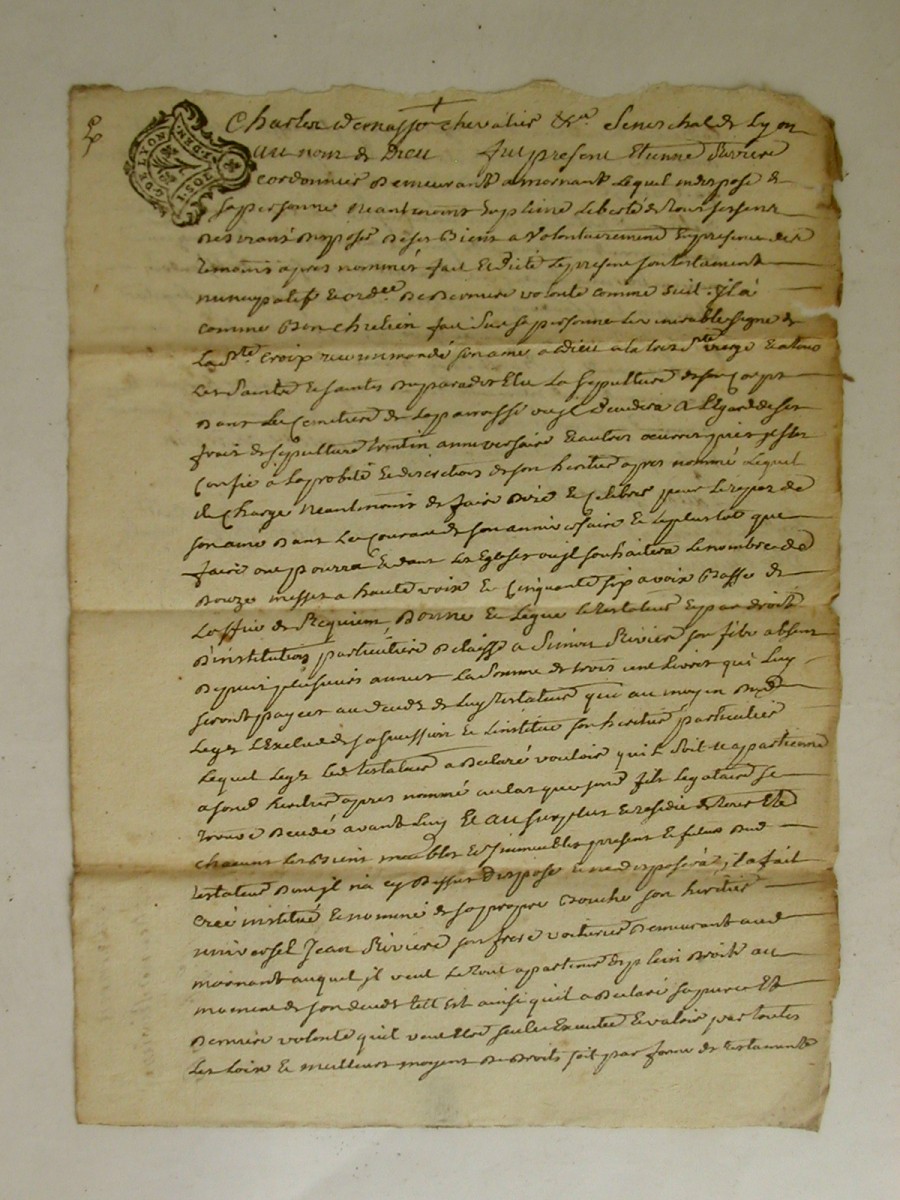 G DE LYON
Charles De masso chevalier &ra Seneschal de Lyon
au nom de Dieu fut present Etienne Riviere
cordonnier Demeurant a mornant lequel indispose de
sa personne Neantmoins en pleine Liberté de tous ses sens
Desirant Disposer De ses Biens a volontairement En presence des
temoins apres nommés fait Et dicté Le present son testament
nuncupatif Et ordce De Derniere volonté comme suit. Jl a
comme Bon chretien fait Sur sa personne Le venerable signe de
La Ste Croix recommandé son ame a Dieu a la tres Ste vierge Et a tous
Les Saints Et saintes Du paradis Elu La sepulture de son Corps
Dans Le Cemetiere de La parroisse ou jl Decedera A L'Egard de ses
frais de sepulture trentin anniversaire Et autres oeuvres pies jl s'en
Confie a La probité Et discretion de son heritier apres nommé Lequel
il Charge Neantmoins de faire Dire Et Celebrer pour Le repos de
son ame Dans Le Courant de son anniversaire Et Le plustot que
faire ce pourra Et dans Les Eglises ou jl souhaitera Le nombre de
Douze messes a haute voix Et Cinquante six a voix Basse de
L'office de Requiem, Donne Et Legue Le testateur Et par droit
D'institution particuliere Delaisse a Simon Riviere son frere absent
Depuis plusieurs années La Somme de trois cent Livres qui Luy
seront payees au deces de Luy testateur qui au moyen Dud
Legs L'Exclud de sa succession Et L'institue son heritier particulier
Lequel Legs Led testateur a Declaré vouloir qu'il soit Et appartienne
a sond heritier apres nommé au cas que sond frere Legataire se
trouve Decedé avant Luy Et au surplus Et residu de tous Et
chacuns Les Biens meubles Et Jmmeubles present Et futurs Dud
testateur Dont jl n'a cy Dessus Disposé Et ne disposera, jl a fait
Créé institué Et nommé de sa propre Bouche son heritier
universel Jean Riviere son frere voiturier Demeurant aud
mornant auquel jl veut Le tout appartenir de plein Droit au
moment de son deces tell Est ainsi qu'il a Declaré sa pure Et
Derniere volonté qu'il veut Etre seule Executée Et valoir par toutes
Les Loix Et meilleurs moyens De Droits soit par forme de testament